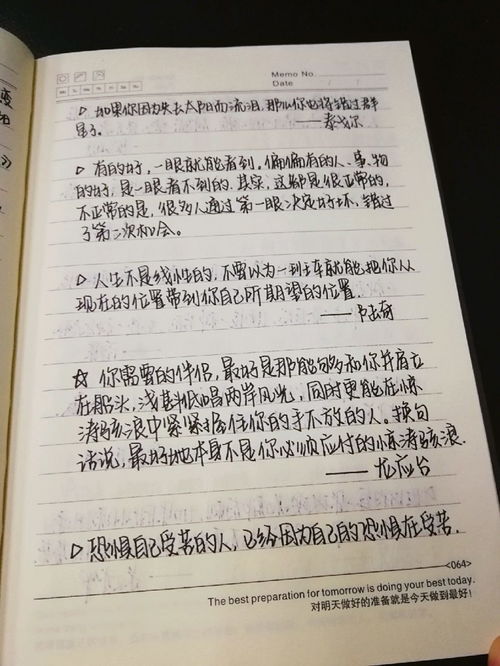 Memo No.
Date / /
▷ 如果你因为失去太阳而流泪,那么你也将错过群
星了。 ——泰戈尔
▷ 有的好,一眼就能看到,偏偏有的人、事、物
的好,是一眼看不到的.其实,这都是很正常的,
不正常的是,很多人通过第一眼决定好坏,错过
了第二次机会。
▷ 人生不是线性的,不要以为一班车就能把你从
现在的位置带到你自己所期望的位置.
——古奇
☆ 你需要的伴侣,最好是那能够和你并肩立
在船头,浅斟低唱两岸风光,同时更能在惊
涛骇浪中紧紧握住你的手不放的人。换句
话说,最好她本身不是你必须应付的惊涛骇浪.
——龙应台
▷ 恐惧自己受苦的人,已经因为自己的恐惧在受苦.
<064>
The best preparation for tomorrow is doing your best today.
对明天做好的准备就是今天做到最好!